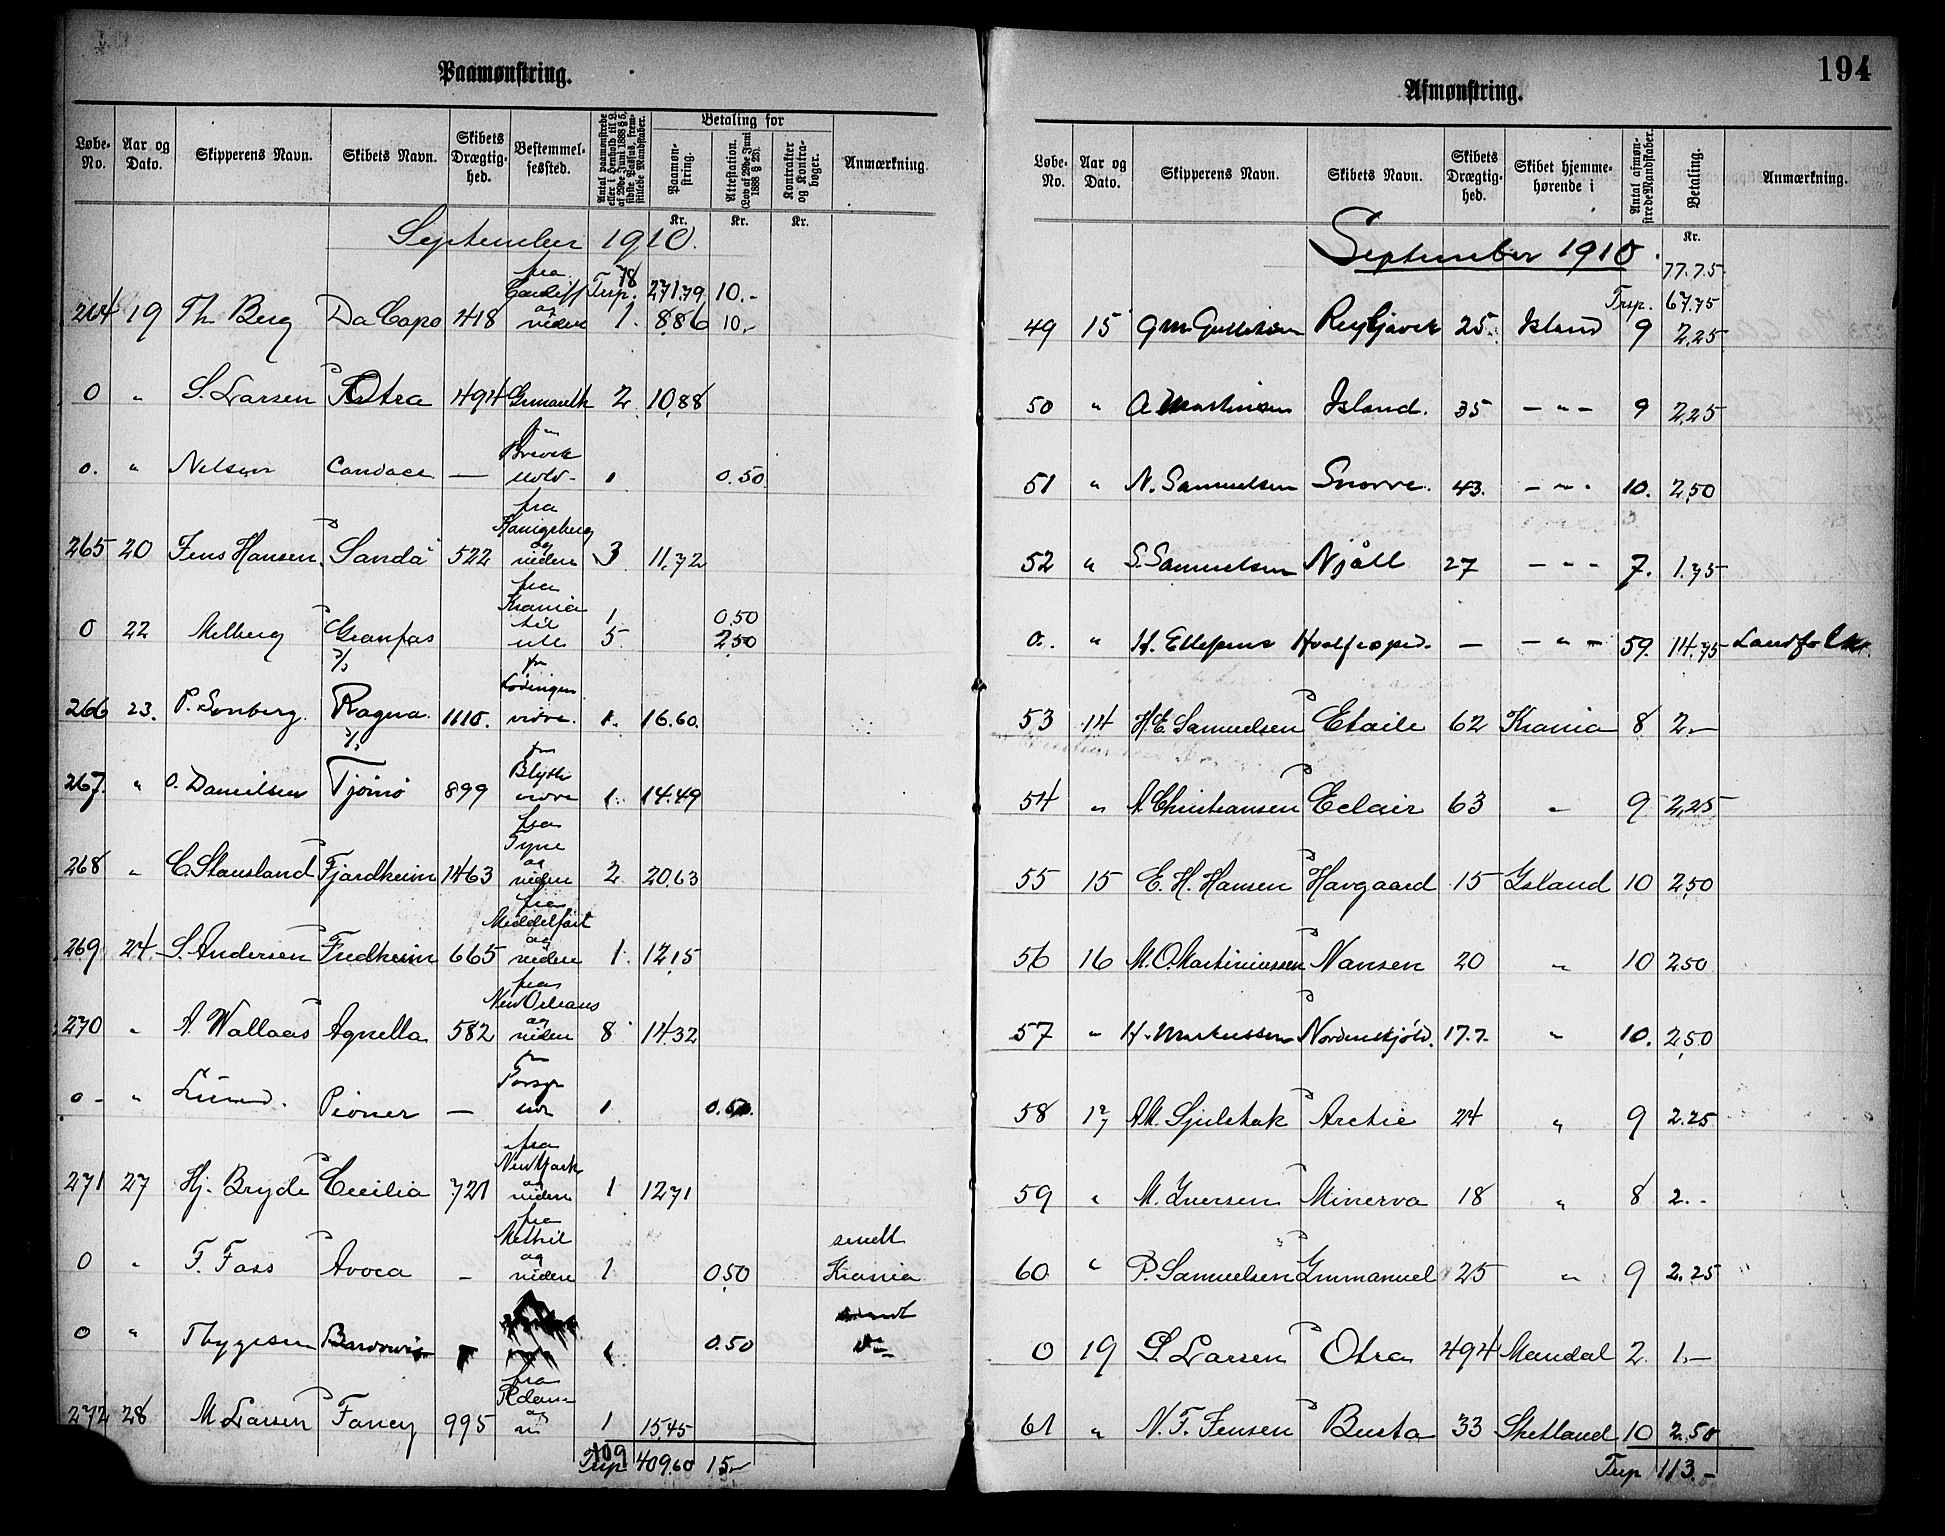 Paamønstring.
Løbe-No. Aar og Dato. Skipperens Navn. Skibets Navn. Skibets Drægtighed. Bestemmelsessted. Antal paamønstrede eller i Henhold til L. af 29de Juni 1888 § 5, sidste Passus, fremstillede Mandskaber. Betaling for Paamønstring. Attestation. (Lov af 29de Juni 1888 § 25). Kontrakter og Kontrabøger. Anmærkning.
Kr. Kr. Kr.
September 1910.
Trsp. 78 271.79 10.-
264 19 Th Berg Da Capo 418 fra Cardiff og videre 1. 8.86 10,-
0 " S. Larsen Otra 494 2 10.88
0. " Nelsen Candace — 1 0.50
265 20 Jens Hansen Sandå 522 fra Kønigsberg og videre 3 11.72
0 22 Melberg Granfos fra Krania til 1 0.50
5 2.50
266 23. P. Sonberg. Ragna. 1110. fra Lødingen vidre. 1. 16.60.
267. " O. Danielsen Tjømø 899 fra Blyth vidre 1. 14.49
268 " C. Stausland Fjordheim 1463 fra Tyne og videre 2 20.63
269 24 S. Andersen Fredheim 665 fra Middelfart og videre 1. 12.15
270 " A. Wallaas Agnella 582 fra New Orleans og videre 8 14.32
0 - " Lund. Pioner — 1 0.50.
271 27 Hj. Bryde Cecilia 721 fra New York og videre 1 12.71
0 " F. Fass Avoca - fra Methil og videre 1 0.50 sendt Krania
0 " Thygesen 0.50
272 28 M Larsen Fancy 995 fra og 1 15.45
109
Trsp 409.60 15,-
Afmønstring.
194
Løbe-No. Aar og Dato. Skipperens Navn. Skibets Navn. Skibets Drægtighed. Skibet hjemmehørende i Antal afmønstrede Mandskaber. Betaling. Anmærkning.
Kr.
September 1910.
77.75
Trsp. 67.75
49 15 Reykjavik 25 Island 9 2.25
50 " A Martinsen Island. 35 — " — 9 2.25
51 " N. Samuelsen Snorre. 43. — " — 10. 2.50
52 " S. Samuelsen Njåll 27 — " — 7. 1.75
0. " H. Ellefsens — — " — 59. 14.75 Landfolk.
53 14 H. E. Samuelsen Etoile 62 Krania 8 2.—
54 " A. Christiansen Eclair 63 " 9 2.25
55 15 E. H. Hansen Havgaard 15 Island 10 2.50
56 16 M. O. Martiniussen Nansen 20 " 10 2.50
57 " H. Markussen Nordenskjöld. 17.7. " 10. 2.50
58 17 Arctic 24 " 9 2.25
59 " M. Iversen Minerva 18 " 8 2.-
60 " P. Samuelsen Immanuel 25 " 9 2.25
0 19 S. Larsen Otra 494 Mandal 2 1.—
61 " N. F. Jensen Busta 33 Shetland 10 2.50
Trsp 113.-